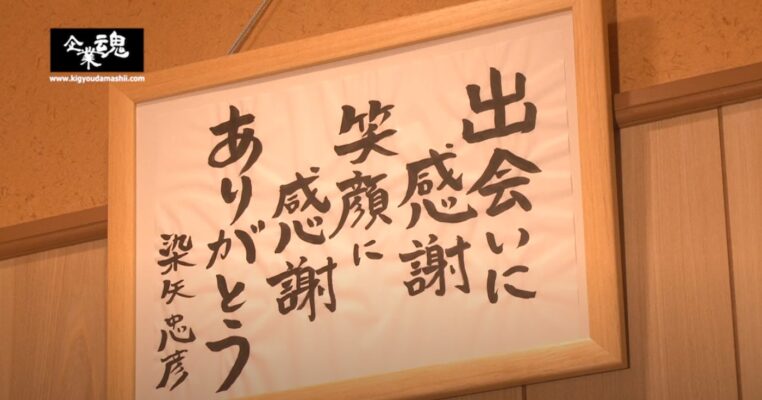 企業魂
www.kigyoudamashii.com
出会いに
感謝
笑顔に
感謝
ありがとう
染矢忠彦